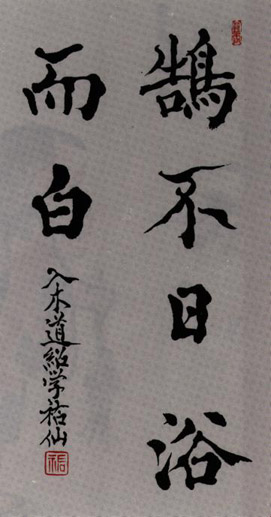 鵠不日浴
而白
入木道紹学祐仙